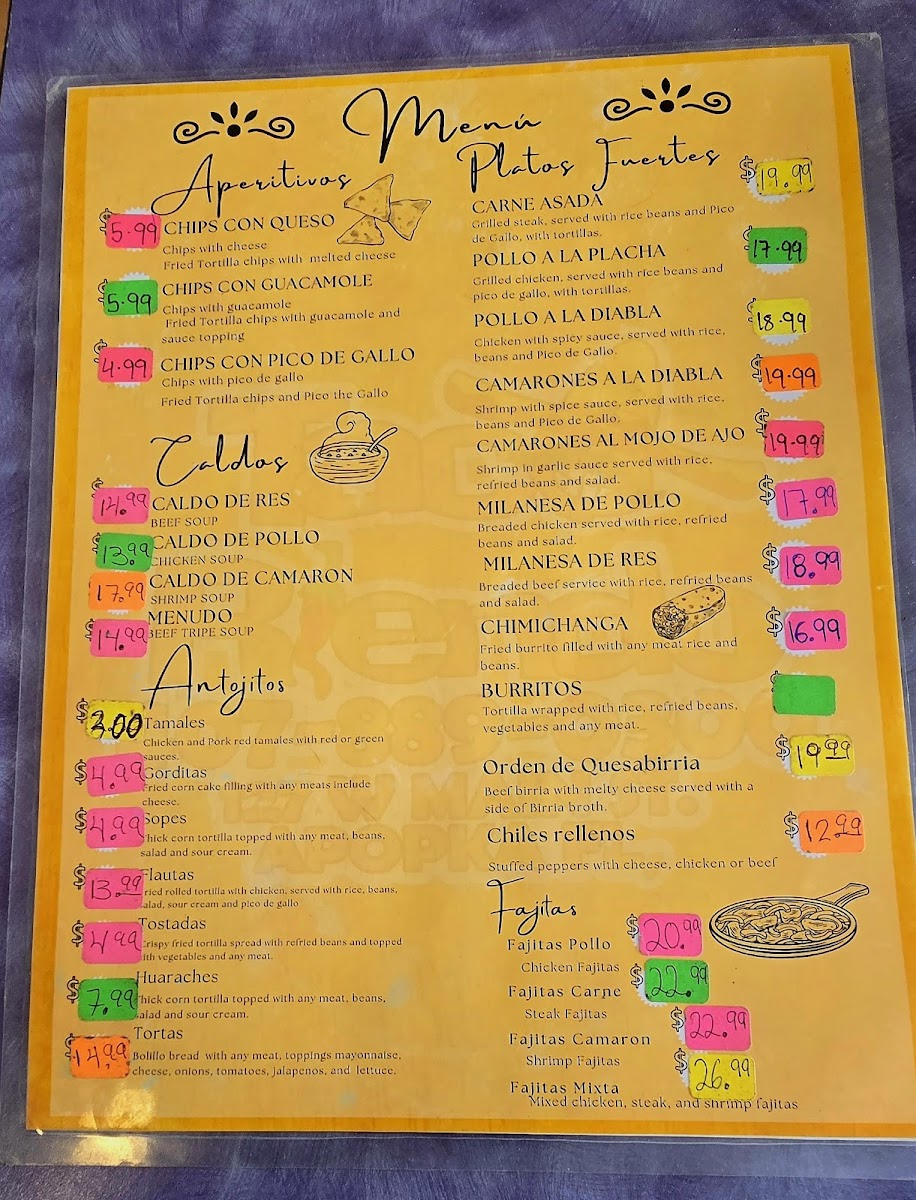 Menú
Aperitivos
$ 5.99 CHIPS CON QUESO
Chips with cheese
Fried Tortilla chips with melted cheese
$ 5.99 CHIPS CON GUACAMOLE
Chips with guacamole
Fried Tortilla chips with guacamole and
sauce topping
$ 4.99 CHIPS CON PICO DE GALLO
Chips with pico de gallo
Fried Tortilla chips and Pico the Gallo
Caldos
$ 14.99 CALDO DE RES
BEEF SOUP
$ 13.99 CALDO DE POLLO
CHICKEN SOUP
$ 17.99 CALDO DE CAMARON
SHRIMP SOUP
$ 14.99 MENUDO
BEEF TRIPE SOUP
Antojitos
$ 3.00 Tamales
Chicken and Pork red tamales with red or green
sauces.
$ 4.99 Gorditas
Fried corn cake filling with any meats include
cheese.
$ 4.99 Sopes
Thick corn tortilla topped with any meat, beans,
salad and sour cream.
$ 13.99 Flautas
Fried rolled tortilla with chicken, served with rice, beans,
salad, sour cream and pico de gallo
$ 4.99 Tostadas
Crispy fried tortilla spread with refried beans and topped
with vegetables and any meat.
$ 7.99 Huaraches
Thick corn tortilla topped with any meat, beans,
salad and sour cream.
$ 14.99 Tortas
Bolillo bread with any meat, toppings mayonnaise,
cheese, onions, tomatoes, jalapenos, and lettuce.
Platos Fuertes
CARNE ASADA $ 19.99
Grilled steak, served with rice beans and Pico
de Gallo, with tortillas.
POLLO A LA PLACHA $ 17.99
Grilled chicken, served with rice beans and
pico de gallo, with tortillas.
POLLO A LA DIABLA $ 18.99
Chicken with spicy sauce, served with rice,
beans and Pico de Gallo.
CAMARONES A LA DIABLA $ 19.99
Shrimp with spice sauce, served with rice,
beans and Pico de Gallo.
CAMARONES AL MOJO DE AJO $ 19.99
Shrimp in garlic sauce served with rice,
refried beans and salad.
MILANESA DE POLLO $ 17.99
Breaded chicken served with rice, refried
beans and salad.
MILANESA DE RES $ 18.99
Breaded beef service with rice, refried beans
and salad.
CHIMICHANGA $ 16.99
Fried burrito filled with any meat rice and
beans.
BURRITOS $
Tortilla wrapped with rice, refried beans,
vegetables and any meat.
Orden de Quesabirria $ 19.99
Beef birria with melty cheese served with a
side of Birria broth.
Chiles rellenos $ 12.99
Stuffed peppers with cheese, chicken or beef
Fajitas
Fajitas Pollo $ 20.99
Chicken Fajitas
Fajitas Carne $ 22.99
Steak Fajitas
Fajitas Camaron $ 22.99
Shrimp Fajitas
Fajitas Mixta $ 26.99
Mixed chicken, steak, and shrimp fajitas